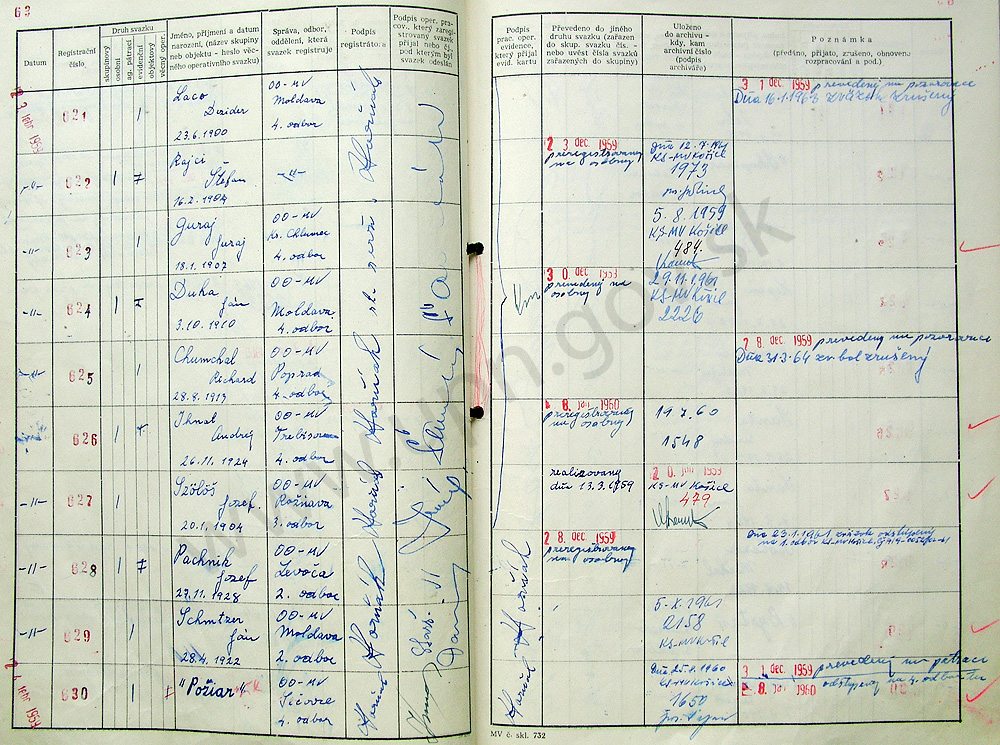 63
Datum
Registrační číslo
Druh svazku
skupinový
osobní
ag. pátrací
evidenční
objektový
věcný oper.
Jméno, příjmení a datum narození, (název skupiny neb objektu - heslo věcného operativního svazku)
Správa, odbor, oddělení, která svazek registruje
Podpis registrátora
Podpis oper. pracov., který zaregistrovaný svazek přijal nebo čj., pod kterým byl svazek odeslán
Podpis prac. oper. evidence, který přijal evid. kartu
Převedeno do jiného druhu svazku (zařazen do skup. svazku čís. - nebo uvést čísla svazků zařazených do skupiny)
Uloženo do archivu - kdy, kam archivní číslo (podpis archiváře)
Poznámka
(předáno, přijato, zrušeno, obnoveno rozpracování a pod.)
621
Laco
Dezider
23.6.1900
OO-MV
Moldava
4. odbor
3 1 dec. 1959 prevedený na pozorovance
Dňa 16.1.1963 zväzok zrušený
-"- 622
Rajci
Štefan
16.2.1904
-"-
2 3 dec. 1959
preregistrovaný
na osobný
KS-MV Košice
1973
-"- 623
Guraj
Juraj
18.1.1907
OO-MV
Kr. Chlumec
4. odbor
5.8.1959
KS-MV Košice
484.
-"- 624
Duha
Ján
3.10.1910
OO-MV
Moldava
4. odbor
3 0. dec. 1959
prevedený na
osobný
29.11.1961
KS-MV Košice
2226
-"- 625
Chumchal
Richard
28.8.1913
OO-MV
Poprad
4. odbor
2 8. dec. 1959 prevedený na pozorovance
Dňa 31.3.64 zv. bol zrušený
626
Ihnat
Andrej
26.11.1924
OO-MV
Trebišov
4. odbor
8. jan. 1960
preregistrovaný
na osobný
11.7.60
1548
-"- 627
Szölöš
Jozef
20.1.1904
OO-MV
Rožňava
3. odbor
realizovaný
dňa 13.3.1959
2 0. jún 1959
KS-MV Košice
479
-"- 628
Pachnik
Jozef
27.11.1928
OO-MV
Levoča
2. odbor
2 8. dec. 1959
preregistrovaný
na osobný
Dňa 23.1.1961 zväzok odstúpený
-"- 629
Schmtzer
Ján
28.4.1922
OO-MV
Moldava
2. odbor
5.X.1961
2158
KS-MV Košice
630
"Požiar"
OO-MV
4. odbor
Dňa 25.8.1960
KS-MV Košice
1650
3 1. dec. 1959 prevedený na pátrací
8. jan. 1960 odstúpený na 4. odbor
MV č. skl. 732
www.upn.gov.sk